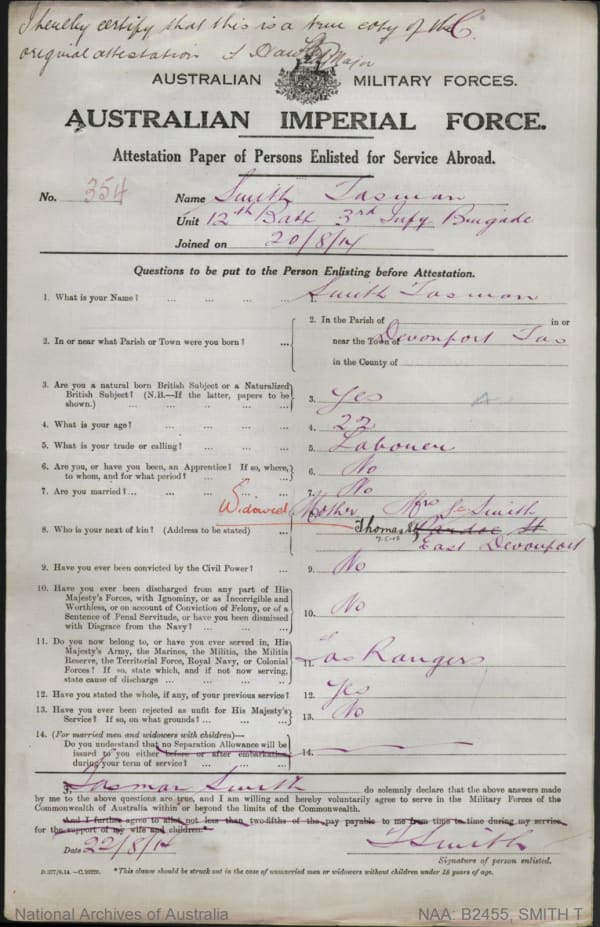 I hereby certify that this is a true copy of the
original attestation Major
AUSTRALIAN MILITARY FORCES.
AUSTRALIAN IMPERIAL FORCE.
Attestation Paper of Persons Enlisted for Service Abroad.
No. 354 Name Smith Tasman
Unit 12th Batt 3rd Infy Brigade
Joined on 20/8/14
Questions to be put to the Person Enlisting before Attestation.
1. What is your Name? ... ... ... ... 1. Smith Tasman
2. In or near what Parish or Town were you born? ... 2. In the Parish of in or
near the Town of Devonport Tas
in the County of
3. Are you a natural born British Subject or a Naturalized
British Subject? (N.B.—If the latter, papers to be
shown.) ... ... ... ... ... 3. Yes
4. What is your age? ... ... ... ... 4. 22
5. What is your trade or calling? ... ... ... 5. Labourer
6. Are you, or have you been, an Apprentice? If so, where,
to whom, and for what period? ... ... ... 6. No
7. Are you married? ... ... ... ... ... 7. No
Widowed Mother Mrs Smith
8. Who is your next of kin? (Address to be stated) ... 8. Thomas St
East Devonport
9. Have you ever been convicted by the Civil Power? ... 9. No
10. Have you ever been discharged from any part of His
Majesty's Forces, with Ignominy, or as Incorrigible and
Worthless, or on account of Conviction of Felony, or of a
Sentence of Penal Servitude, or have you been dismissed
with Disgrace from the Navy? ... ... ... 10. No
11. Do you now belong to, or have you ever served in, His
Majesty's Army, the Marines, the Militia, the Militia
Reserve, the Territorial Force, Royal Navy, or Colonial
Forces? If so, state which, and if not now serving,
state cause of discharge ... ... ... ... 11. Tas Rangers
12. Have you stated the whole, if any, of your previous service? 12. Yes
13. Have you ever been rejected as unfit for His Majesty's
Service? If so, on what grounds? ... ... ... 13. No
14. (For married men and widowers with children)—
Do you understand that no Separation Allowance will be
issued to you either before or after embarkation
during your term of service? ... ... ... 14.
I, Tasman Smith do solemnly declare that the above answers made
by me to the above questions are true, and I am willing and hereby voluntarily agree to serve in the Military Forces of the
Commonwealth of Australia within or beyond the limits of the Commonwealth.
And I further agree to allot not less than two-fifths of the pay payable to me from time to time during my service
for the support of my wife and children.*
Date 22/8/14 T Smith
Signature of person enlisted.
D.277/8.14.—C.10229. *This clause should be struck out in the case of unmarried men or widowers without children under 18 years of age.
National Archives of Australia NAA: B2455, SMITH T